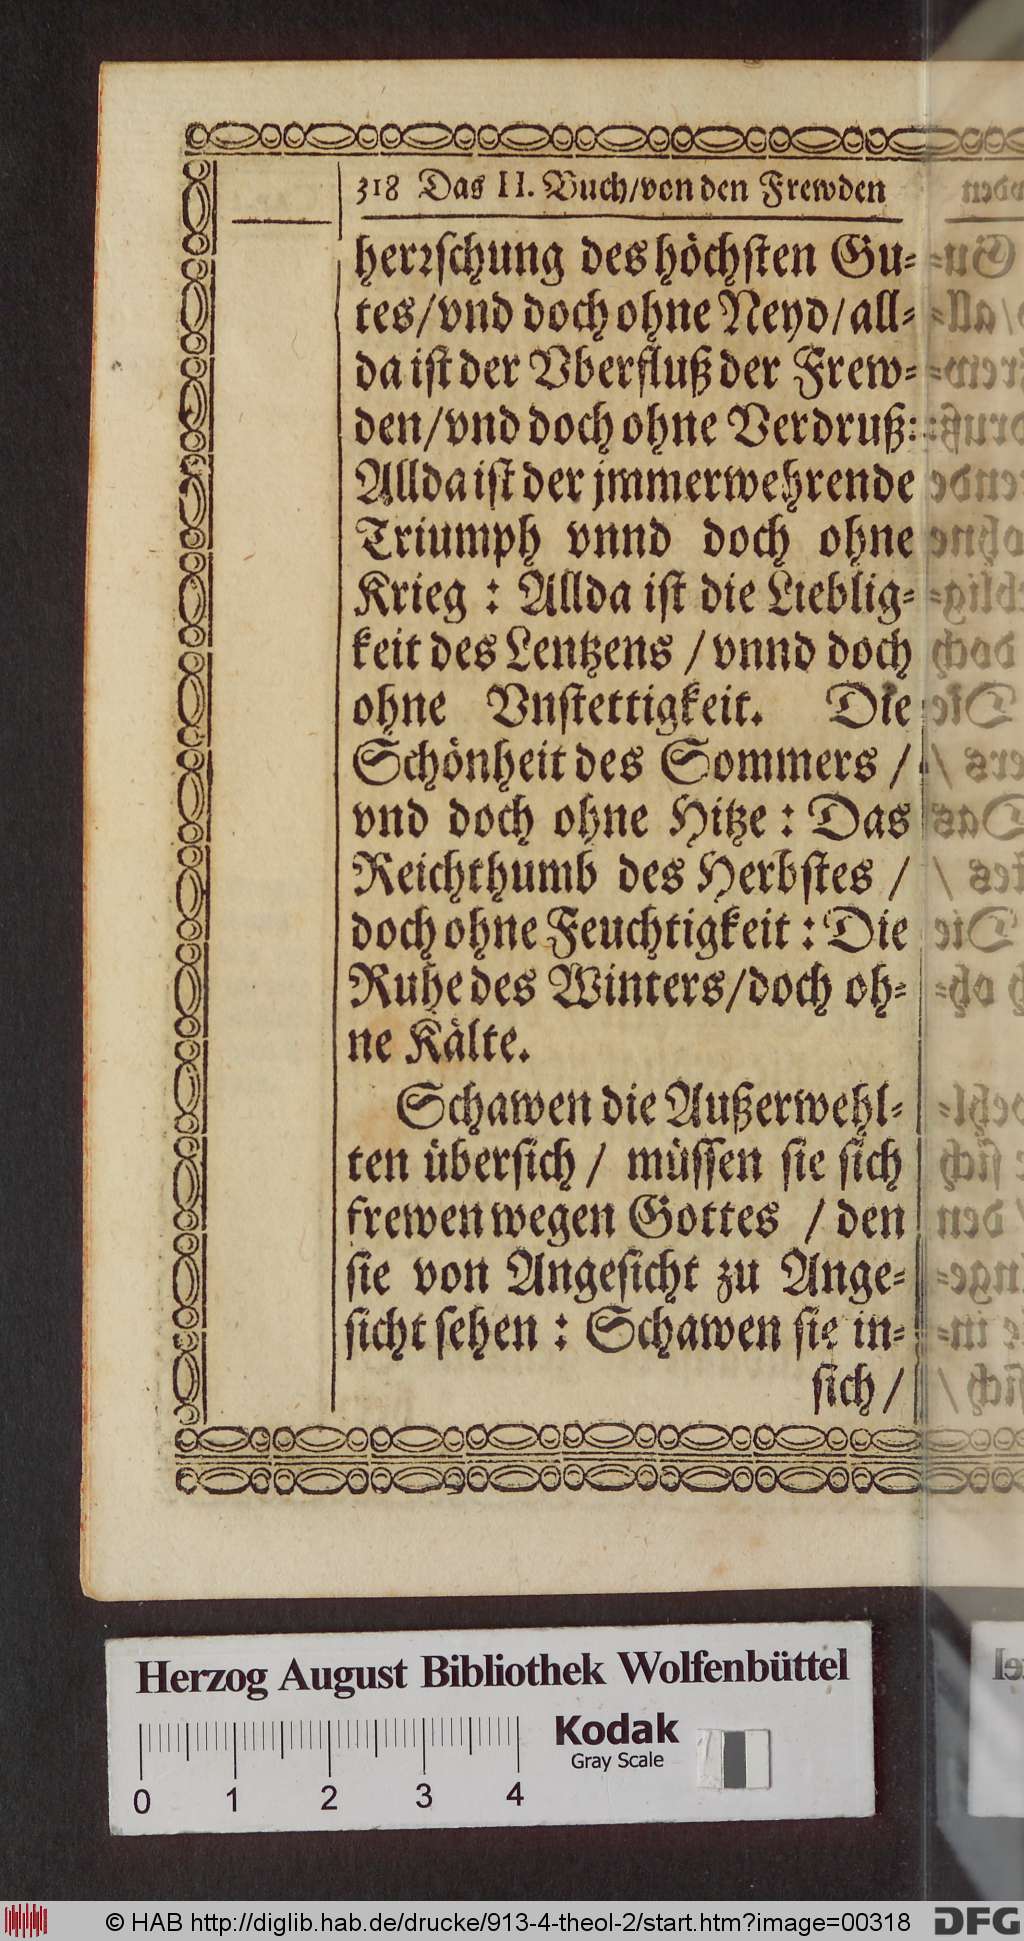 318 Das II. Buch/von den Frewden
herrschung des höchsten Gu-
tes/vnd doch ohne Neyd/all-
da ist der Vberfluß der Frew-
den/vnd doch ohne Verdruß:
Allda ist der jmmerwehrende
Triumph vnnd doch ohne
Krieg : Allda ist die Lieblig-
keit des Lentzens / vnnd doch
ohne Vnstettigkeit. Die
Schönheit des Sommers /
vnd doch ohne Hitze : Das
Reichthumb des Herbstes /
doch ohne Feuchtigkeit : Die
Ruhe des Winters/doch oh-
ne Kälte.
Schawen die Außerwehl-
ten übersich / müssen sie sich
frewen wegen Gottes / den
sie von Angesicht zu Ange-
sicht sehen : Schawen sie in-
sich /
Herzog August Bibliothek Wolfenbüttel
Kodak
Gray Scale
0 1 2 3 4
© HAB http://diglib.hab.de/drucke/913-4-theol-2/start.htm?image=00318
DFG